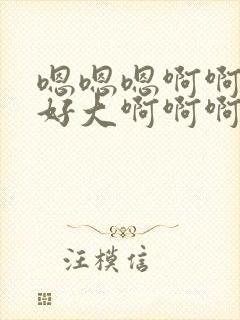 嗯嗯嗯啊啊
好大啊啊啊
汪模信